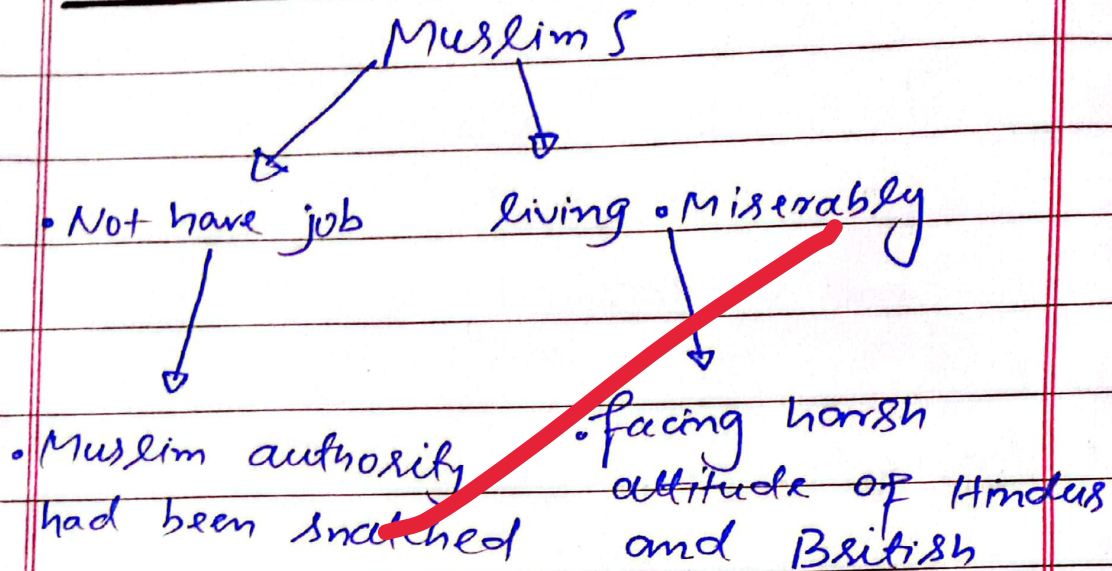 Muslims
• Not have job
living • Miserably
• Muslim authority
had been snatched
• facing harsh
attitude of Hindus
and British